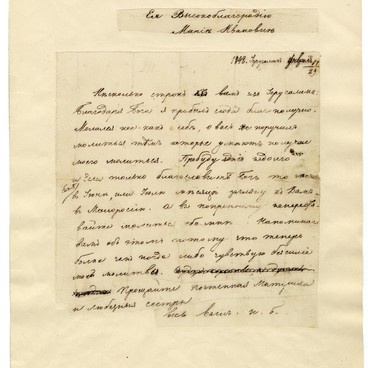 Ея Высокоблагородію
Маріи Ивановнѣ
1848. Іерусалимъ Февраля
Нѣсколько строкъ къ вамъ изъ Іерусалима.
Благодаря Бога я прибылъ сюда благополучно.
Молился кое-какъ о себѣ, о васъ же поручилъ
молиться тѣмъ которые умѣютъ получше
моего молиться. Пробуду здѣсь недолго
и если только благословитъ Богъ то
въ Іюнѣ, или Іюлѣ мѣсяцѣ загляну къ Вамъ
въ Малороссію. А вы попрежнему не перест
вайте молиться обо мнѣ. Напоминаю
вамъ объ этомъ потому что теперь
болѣе чѣмъ когда либо чувствую безсиліе
моей молитвы.
Прощайте почтенная Матушка
и любезныя сестры
весь вашъ. Н. Г.